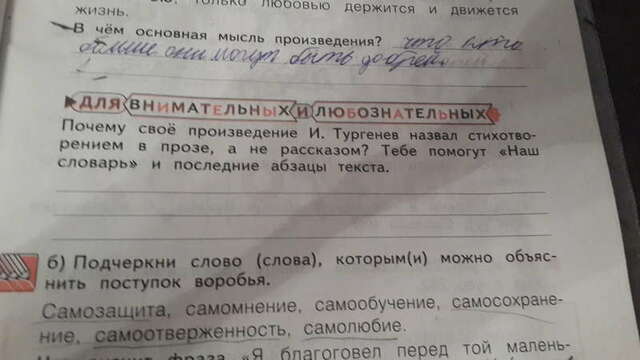 жизнь. только любовью держится и движется
В чём основная мысль произведения? что
они могут быть
ДЛЯ ВНИМАТЕЛЬНЫХ И ЛЮБОЗНАТЕЛЬНЫХ
Почему своё произведение И. Тургенев назвал стихотво-
рением в прозе, а не рассказом? Тебе помогут «Наш
словарь» и последние абзацы текста.
б) Подчеркни слово (слова), которым(и) можно объяс-
нить поступок воробья.
Самозащита, самомнение, самообучение, самосохране-
ние, самоотверженность, самолюбие.
фраза «Я благоговел перед той малень-